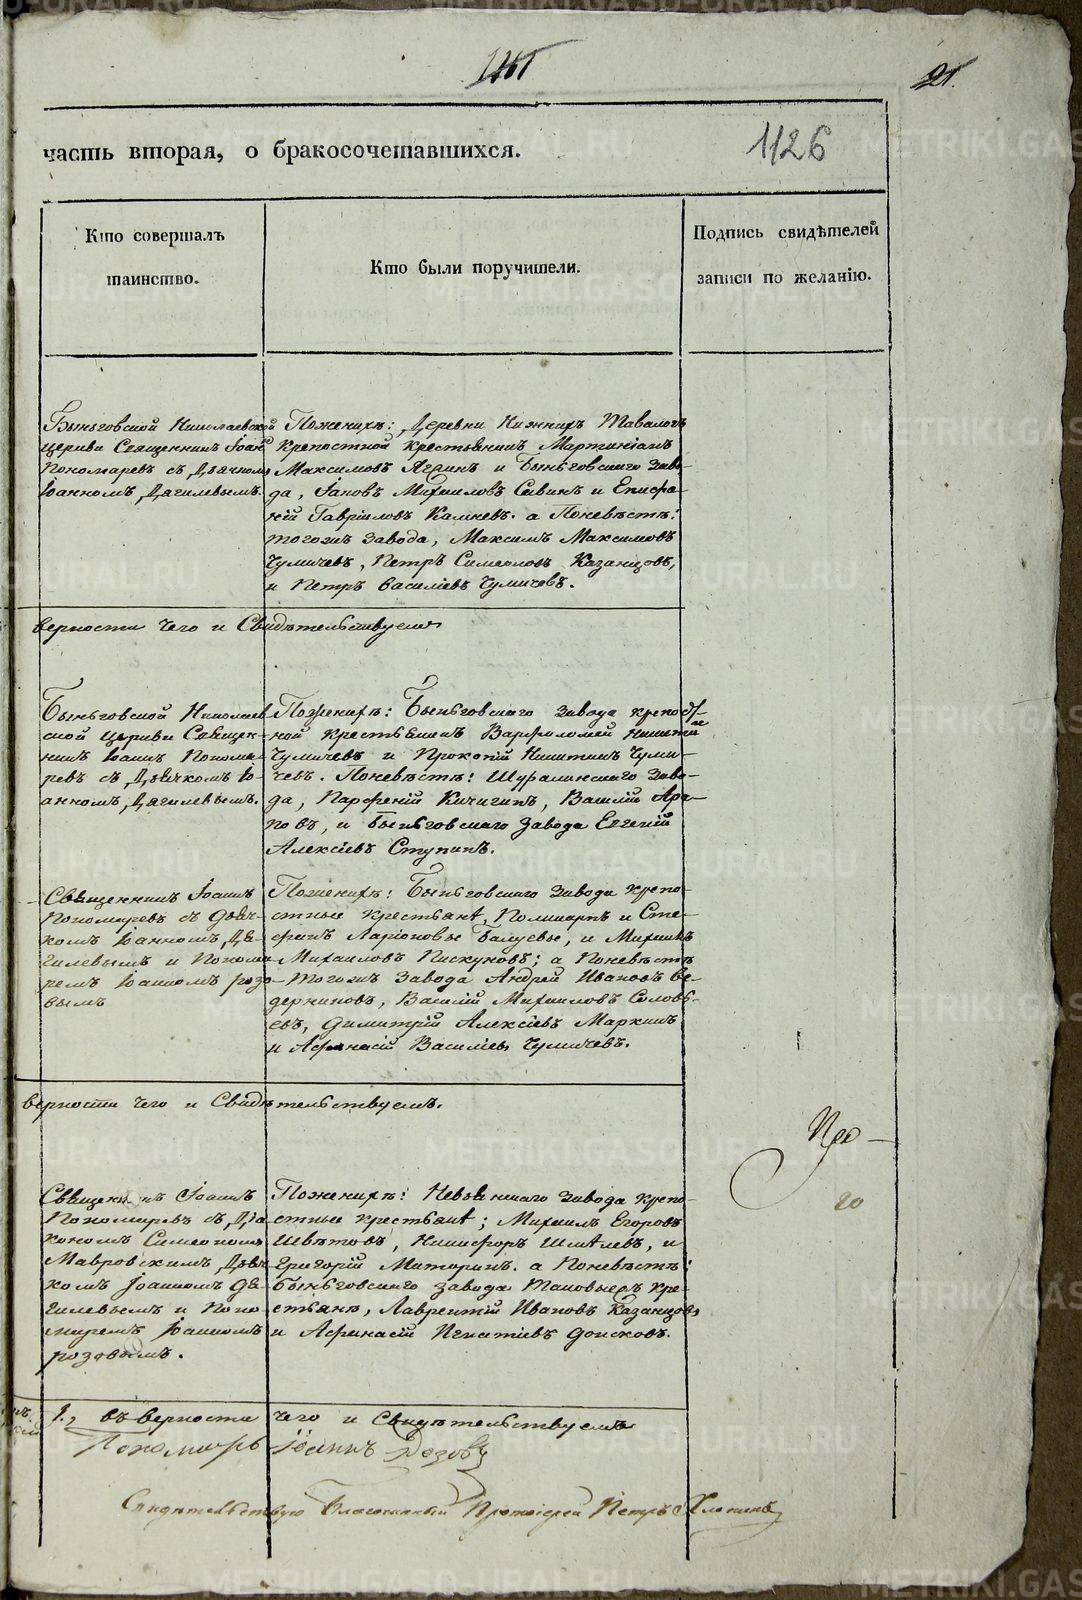 1126
часть вторая, о бракосочетавшихся.
Кто совершалъ
таинство.
Кто были поручители.
Подпись свидѣтелей
записи по желанію.
Быньговской Николаевской
церкви Священникъ Іоаннъ
Пономаревъ съ Дьячкомъ
Іоанномъ Дягилевымъ.
Поженихѣ: Деревни Нижнихъ Тавологъ
крепостной крестьянинъ Мартиніанъ
Максимовъ и Быньговскаго заво-
да, Іаковъ Михаиловъ Савинъ и Епифа-
ній Гавріиловъ Камневъ. а Поневѣстѣ:
тогожъ завода, Максимъ Максимовъ
Чумичевъ, Петръ Симеоновъ Казанцовъ,
и Петръ Василіевъ Чумичовъ.
верности чего и Свидѣтельствуемъ
Быньговской Николаев
ской церкви Священ-
никъ Іоаннъ Понома-
ревъ съ Дьячкомъ Іо-
анномъ Дягилевымъ.
Поженихѣ: Быньговскаго завода крепост
ной крестьянинъ Варфоломей Никитинъ
Чумичевъ и Прокопій Никитинъ Чуми-
чевъ. Поневѣстѣ: Шуралинскаго заво-
да, Парфеній Кичигинъ, Василій Ара-
повъ, и Быньговскаго завода Евгеній
Алексіевъ Ступинъ.
Священникъ Іоаннъ
Пономаревъ съ дьяч-
комъ Іоанномъ Дя-
гилевымъ и Понома
ремъ Іоанномъ розо-
вымъ
Поженихѣ: Быньговскаго завода крепо-
стные крестьянѣ, Поликарпъ и Сте-
фанъ Ларіоновы Балуевы, и Михаилъ
Михаиловъ Пискуновъ; а Поневѣстѣ
Тогожъ завода Андрей Ивановъ Ве-
дерниковъ, Василій Михаиловъ Соловь-
евъ, Димитрій Алексіевъ Маркинъ
и Афанасій Василіевъ Чумичевъ.
верности чего и Свидѣтельствуемъ.
Священникъ Іоаннъ
Пономаревъ съ Диа
кономъ Симеономъ
Мавровскимъ, Дьяч
комъ Іоанномъ Дя-
гилевымъ и Поно-
маремъ Іоанномъ
розовымъ.
Поженихѣ: Невьянскаго завода крепо-
стные крестьянѣ; Михаилъ Егоровъ
Шветовъ, Никифоръ Шмелевъ, и
Григорій Маторинъ. а Поневѣстѣ:
Быньговскаго завода таковыежъ кре-
стьянѣ, Лаврентій Ивановъ Казанцовъ,
и Афанасій Игнатіевъ Донсковъ.
1., въ верности чего и Свидѣтельствуемъ
Пономарь Іоаннъ Розовъ
Свидѣтельствую Благочинный Протоіерей Петръ Хлопинъ